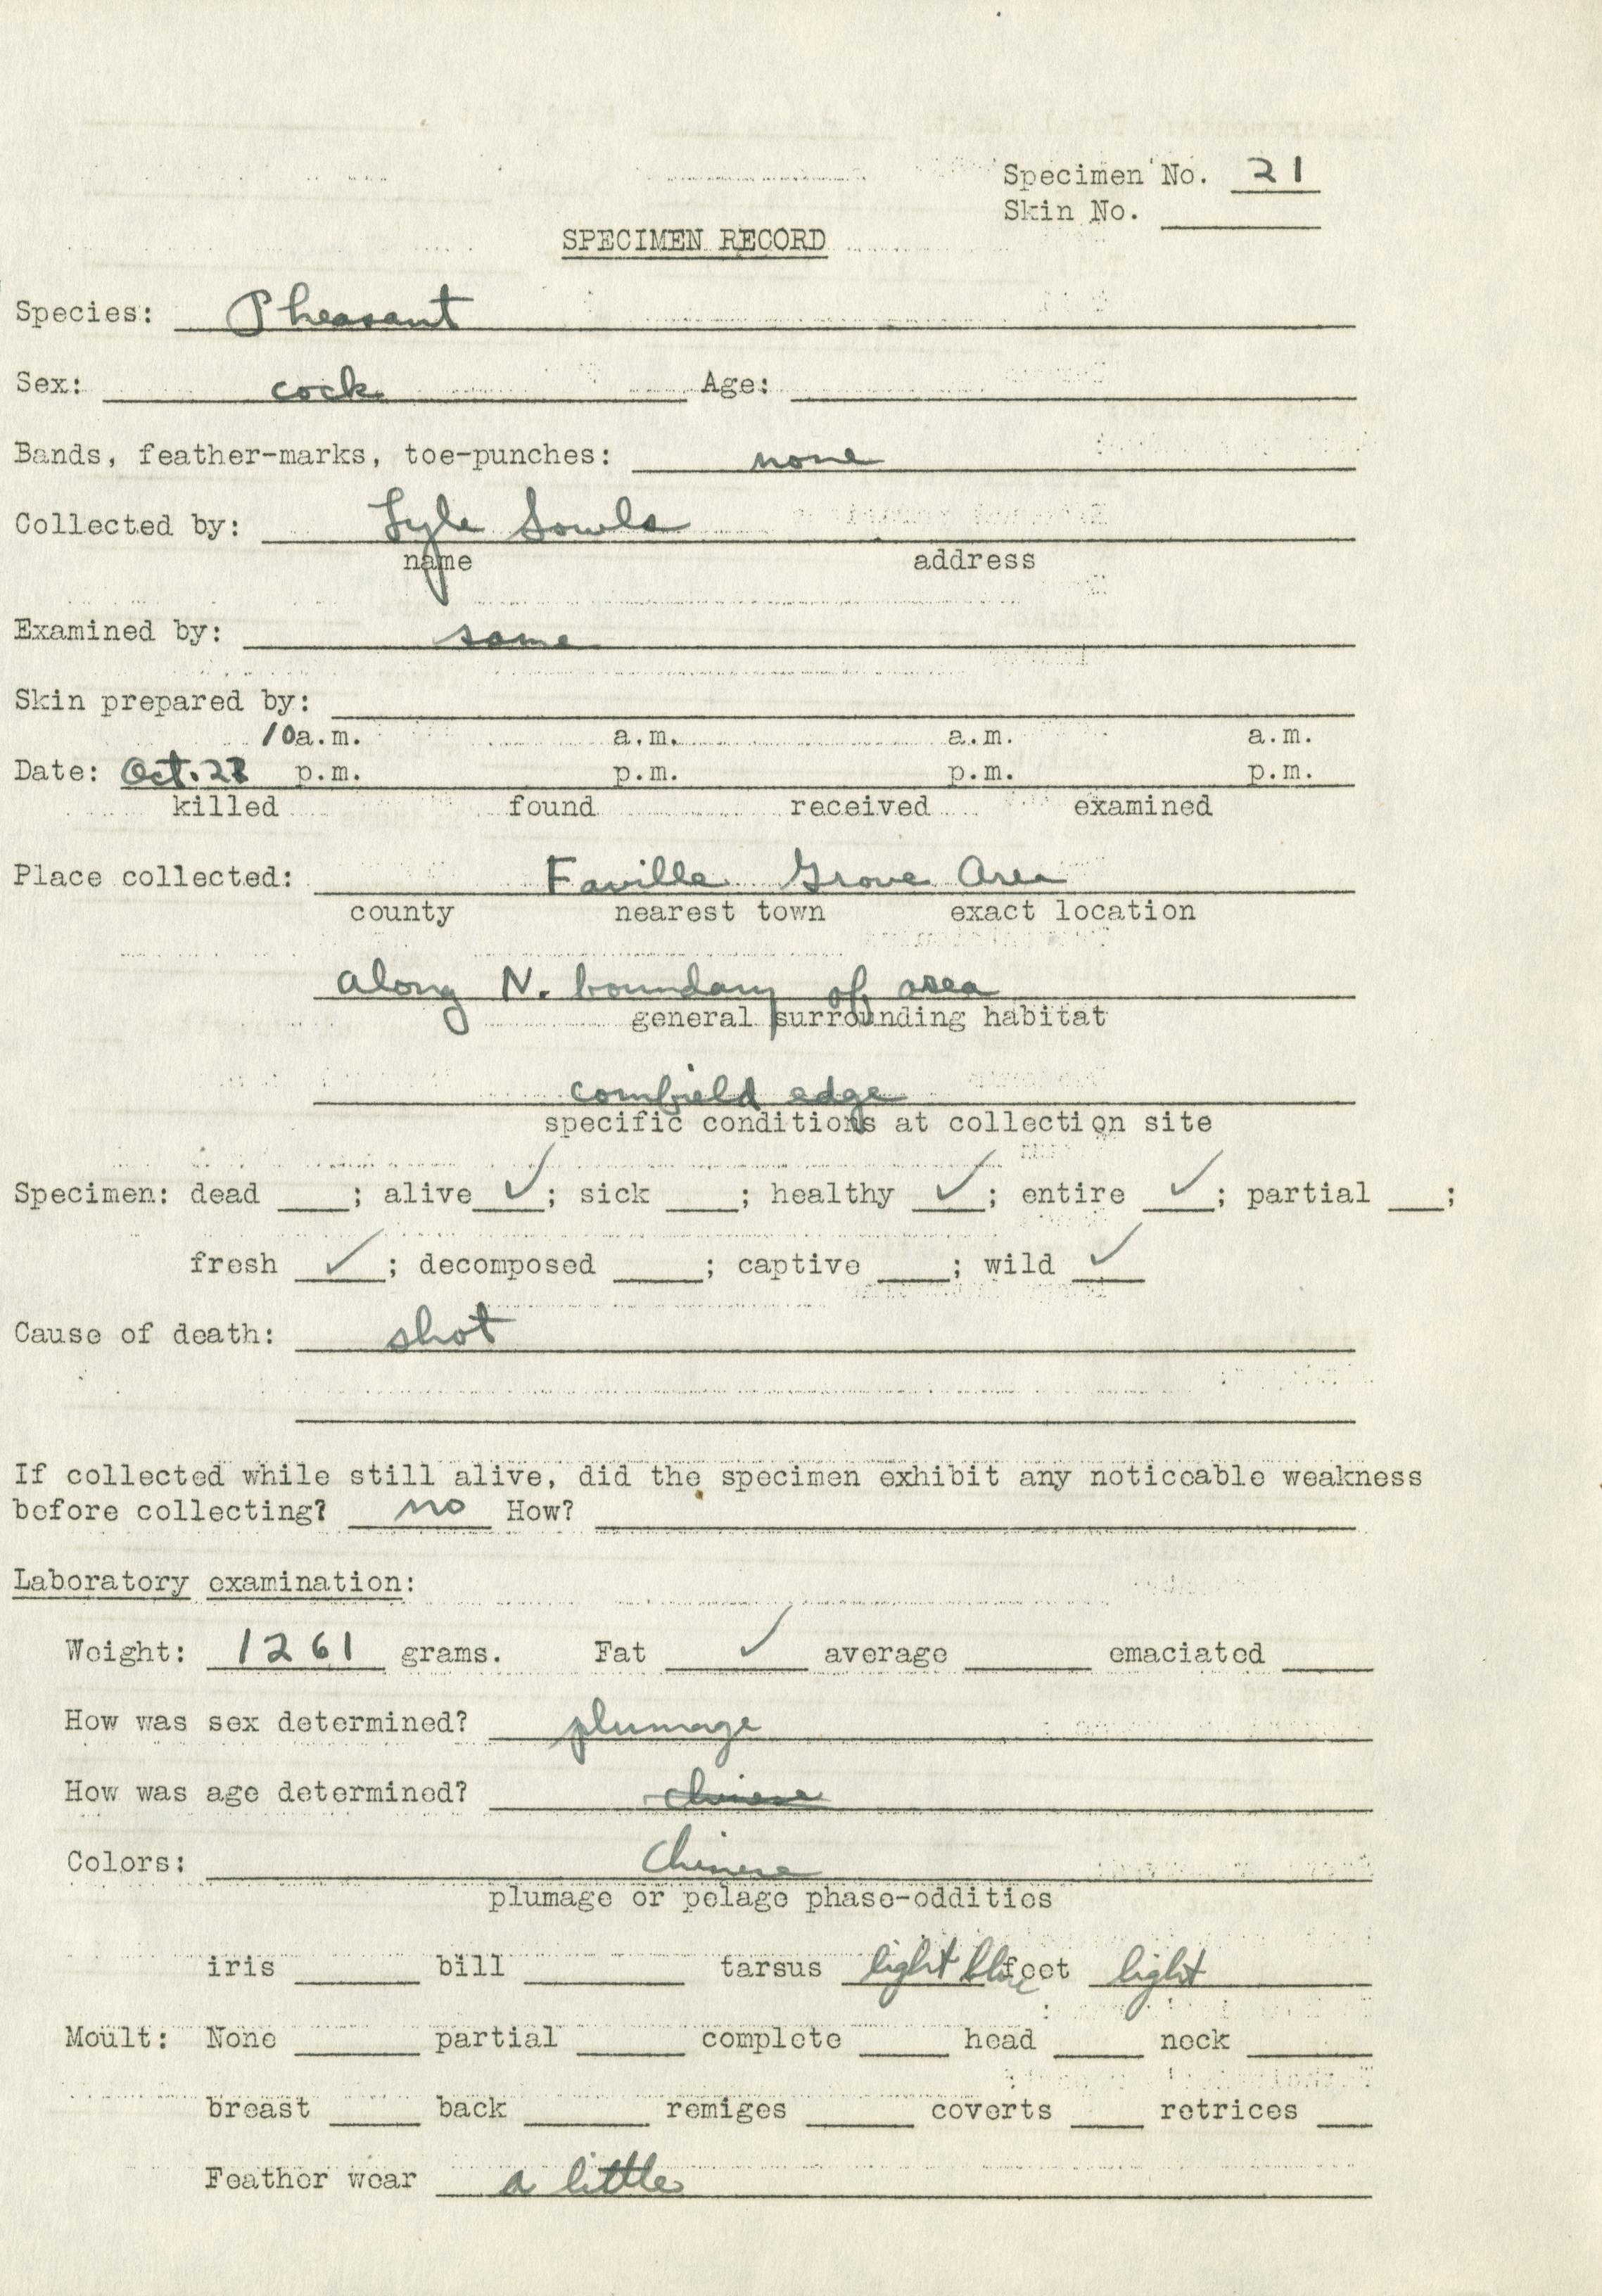 Specimen No. 21
Skin No. ____
SPECIMEN RECORD
Species: Pheasant
Sex: cock Age: ____
Bands, feather-marks, toe-punches: none
Collected by: Lyle Sowls
name address
Examined by: same
Skin prepared by: ____
10 a.m. a.m. a.m. a.m.
Date: Oct. p.m. p.m. p.m. p.m.
killed found received examined
Place collected: Faville Grove Area
county nearest town exact location
along N. boundary of area
general surrounding habitat
cornfield edge
specific conditions at collection site
Specimen: dead ____; alive ✓; sick ____; healthy ✓; entire ✓; partial ___;
fresh ✓; decomposed ____; captive ____; wild ✓
Cause of death: shot
If collected while still alive, did the specimen exhibit any noticeable weakness
before collecting? no How? ____
Laboratory examination:
Weight: 1261 grams. Fat ✓ average ____ emaciated ____
How was sex determined? plumage
How was age determined? chinese
Colors: Chinese
plumage or pelage phase-oddities
iris ____ bill ____ tarsus light blue foot light
Moult: None ____ partial ____ complete ____ head ____ neck ____
breast ____ back ____ remiges ____ coverts ____ retrices ___
Feather wear a little